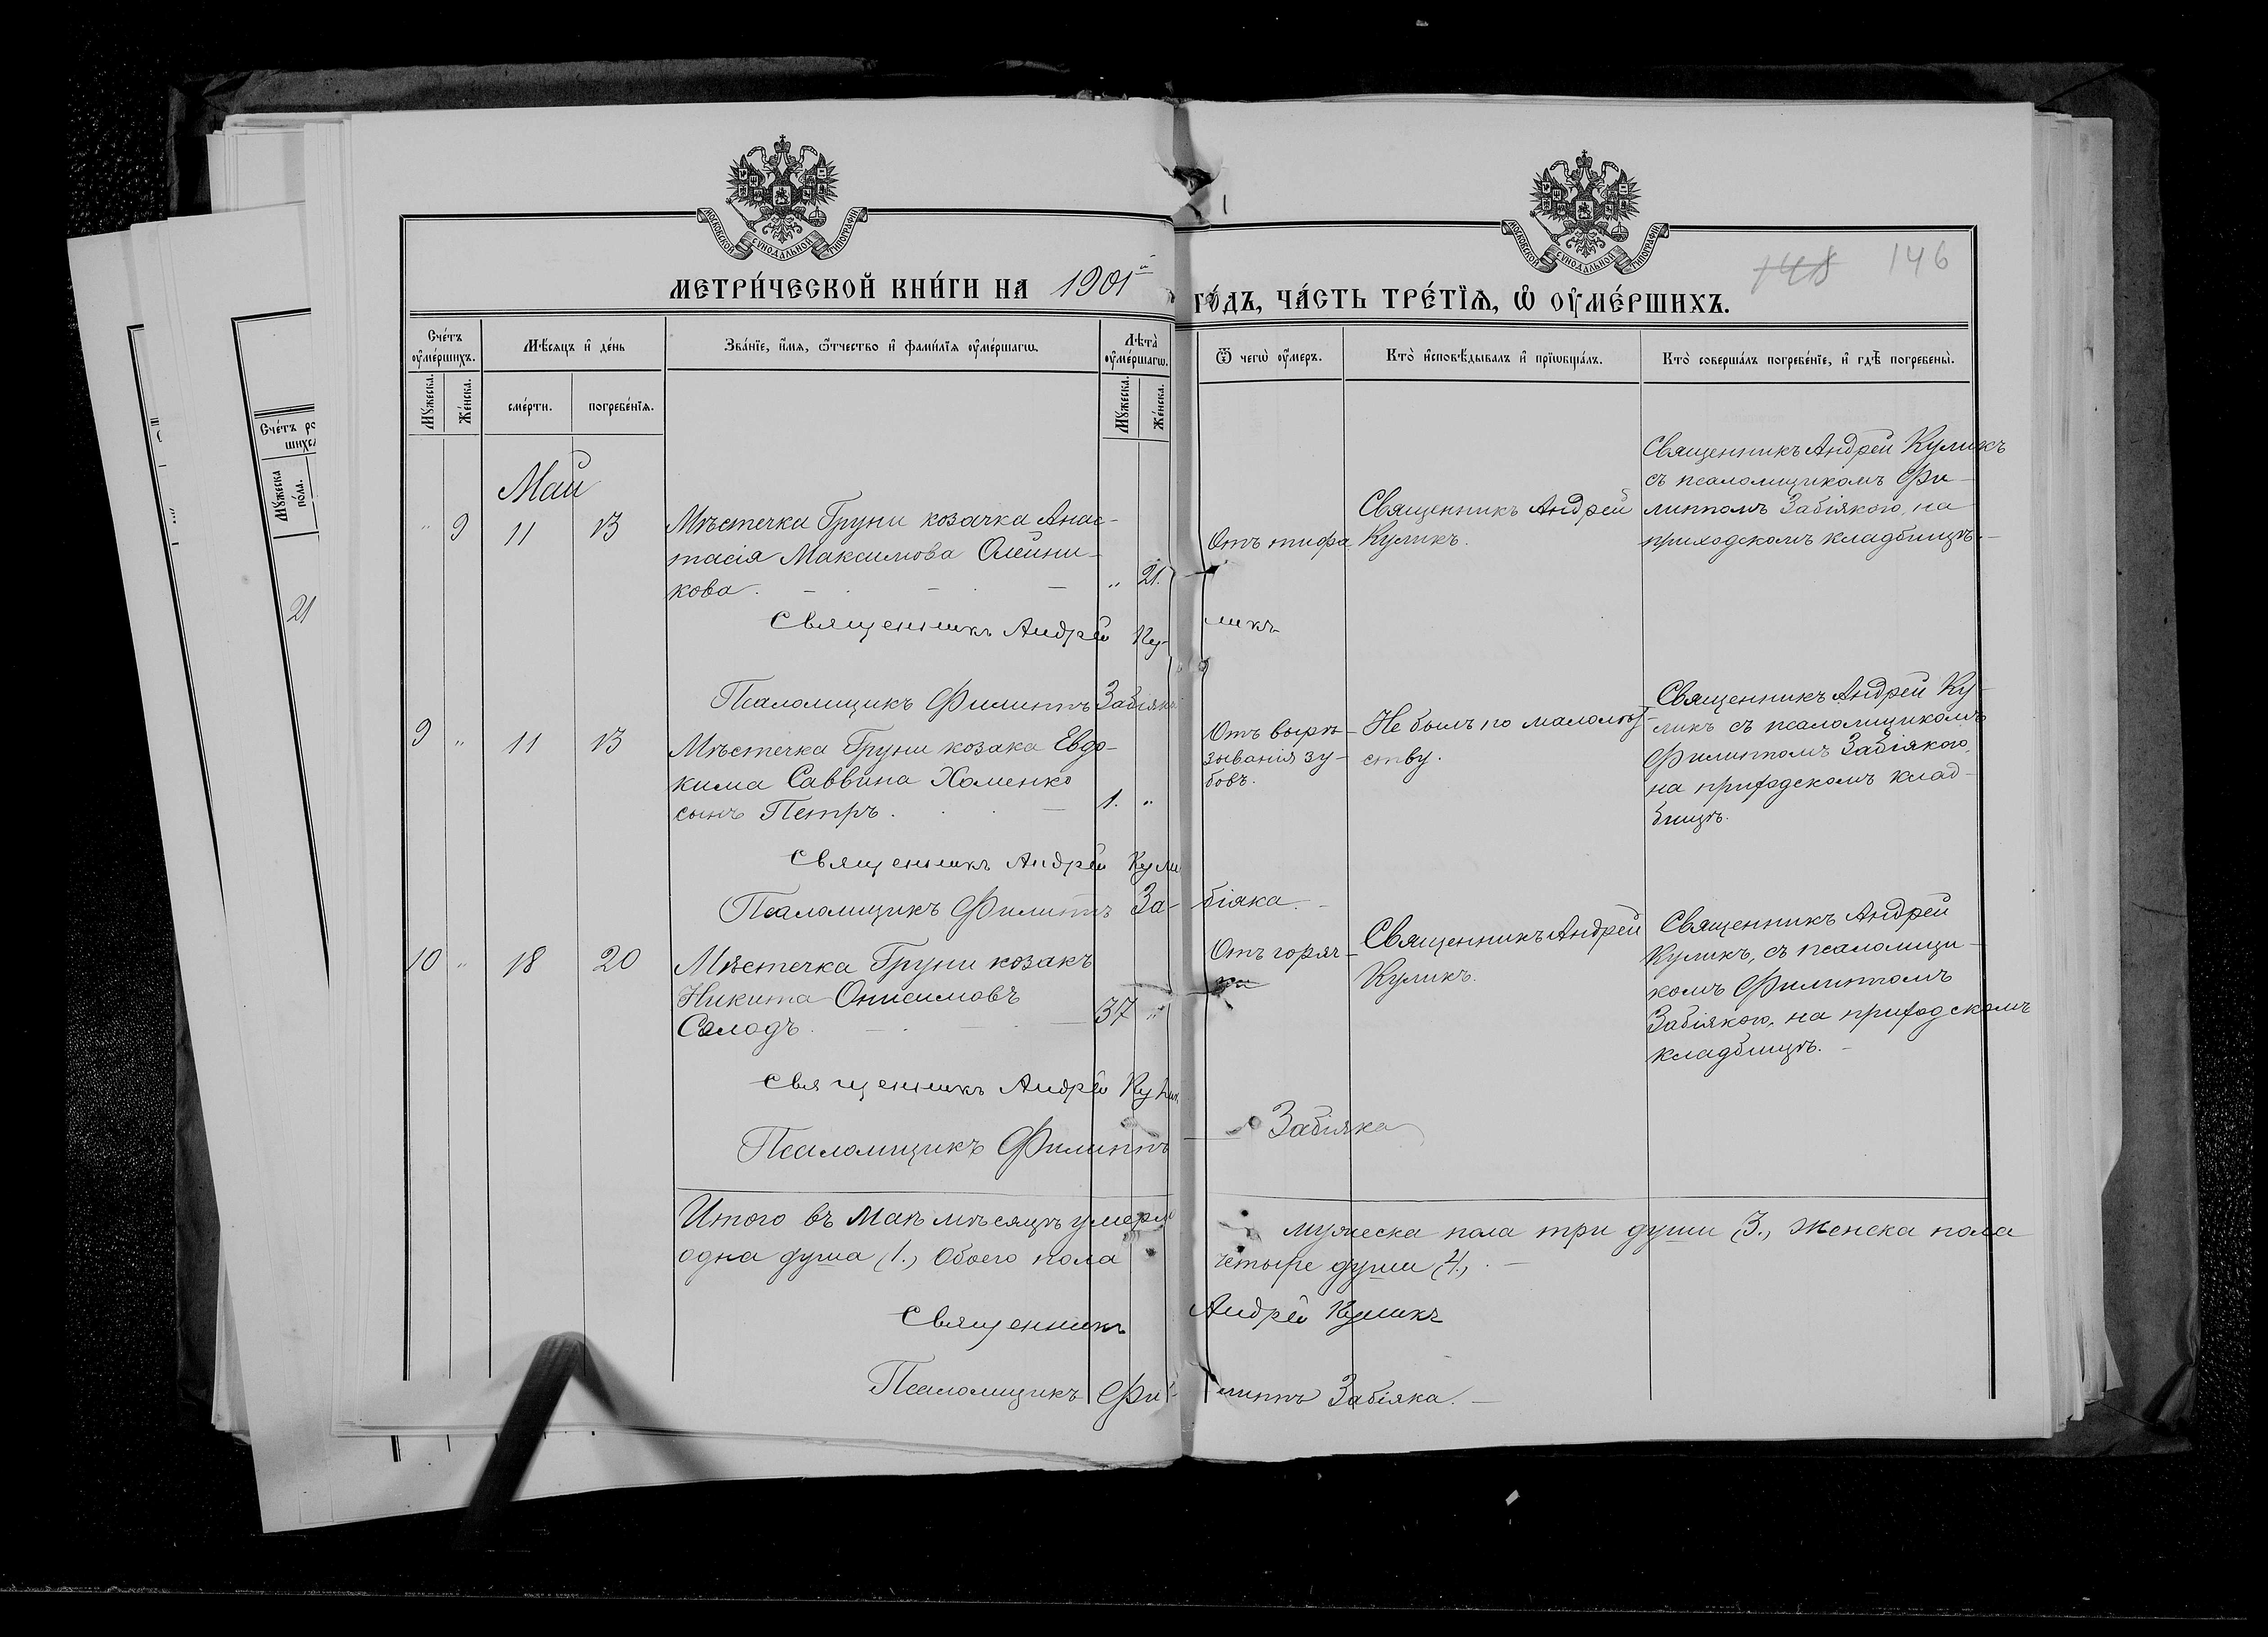 МОСКОВСКОЙ СУНОДАЛЬНОЙ ТИПОГРАФІИ
МОСКОВСКОЙ СУНОДАЛЬНОЙ ТИПОГРАФІИ
148 146
МЕТРИ́ЧЕСКОЙ КНИ́ГИ НА 1901й ГО́ДЪ, ЧА́СТЬ ТРЕ́ТЇѦ, Ѡ҆ ОУ҆МЕ́РШИХЪ.
Сче́тъ оу҆ме́ршихъ.
Мꙋ́жеска.
Же́нска.
Мѣ́сяцъ и҆ де́нь
сме́рти.
погребе́нїѧ.
Зва́нїе, и҆́мѧ, ѻ҆́тчество и҆ фами́лїѧ оу҆ме́ршагѡ.
Лѣ́та оу҆ме́ршагѡ.
Мꙋ́жеска.
Же́нска.
Ѿ чегѡ̀ оу҆́меръ.
Кто̀ и҆сповѣ́дывалъ и҆ прїѡбща́лъ.
Кто̀ соверша́лъ погребе́нїе, и҆ гдѣ̀ погребены̀.
Сче́тъ ро
шихс
Мꙋ́жеска по́ла.
21
Май
" 9 11 13
Мѣстечка Груни козачка Анас-
тасія Максимова Олейни-
кова. " 21.
Отъ тифа
Священникъ Андрей
Куликъ.
Священникъ Андрей Куликъ
съ псаломщикомъ Фи-
липпомъ Забіякою, на
приходскомъ кладбищѣ.
Священникъ Андрей Ку-
ликъ
Псаломщикъ Филиппъ Забіяка
9 " 11 13
Мѣстечка Груни козака Евдо-
кима Саввина Хоменко
сынъ Петръ. 1. "
Отъ вырѣ-
зыванія зу-
бовъ.
Не былъ по малолѣт-
ству.
Священникъ Андрей Ку-
ликъ съ псаломщикомъ
Филиппомъ Забіякою,
на приходскомъ клад-
бищѣ.
Священникъ Андрей Кули
Псаломщикъ Филиппъ За-
біяка.
10 " 18 20
Мѣстечка Груни козакъ
Никита Онисимовъ
Солодъ. 37 "
Отъ горяч-
ки
Священникъ Андрей
Куликъ.
Священникъ Андрей
Куликъ, съ псаломщи-
комъ Филиппомъ
Забіякою, на приходскомъ
кладбищѣ.
Священникъ Андрей Кулик
Псаломщикъ Филиппъ Забіяка
Итого въ Маѣ мѣсяцѣ умерло мужеска пола три души (3., женска пола
одна душа (1., Обоего пола четыре души (4.,
Священникъ Андрей Куликъ
Псаломщикъ Фи-липпъ Забіяка.